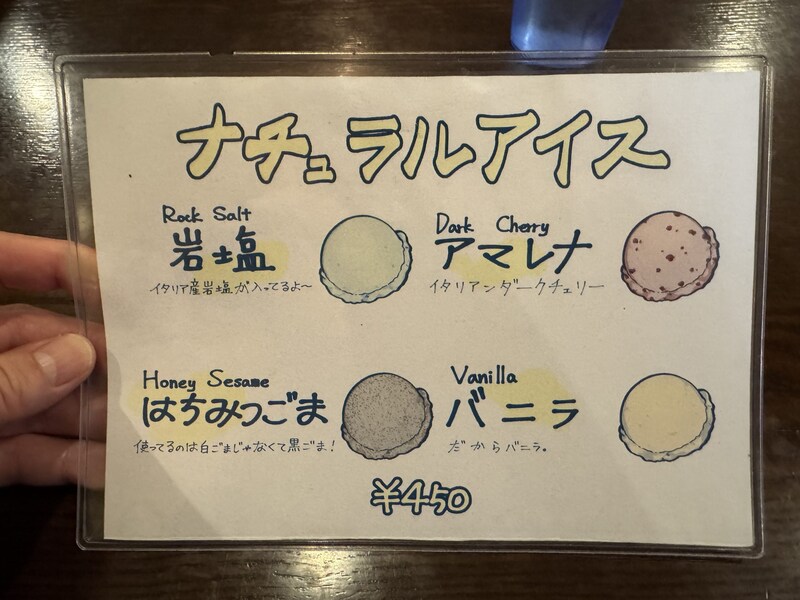 ナチュラルアイス
Rock Salt
岩塩
イタリア産岩塩が入ってるよ〜
Dark Cherry
アマレナ
イタリアンダークチェリー
Honey Sesame
はちみつごま
使ってるのは白ごまじゃなくて黒ごま!
Vanilla
バニラ
だからバニラ。
¥450